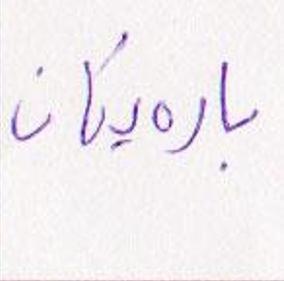 بارەیکان